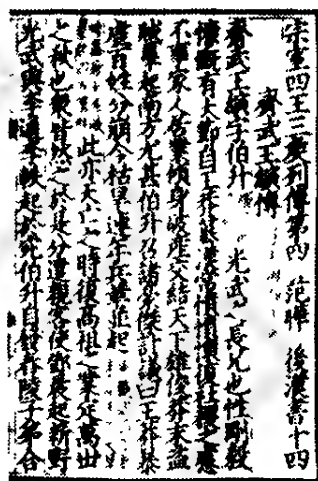 宗室四王三侯列傳第四 范曄 後漢書十四
齊武王縯傳
齊武王縯字伯升 光武之長兄也性剛毅
慷慨有大節自王莽篡漢常憤憤懷復社稷之慮
不事家人居業傾身破產交結天下雄俊莽末盜
賊羣起南方尤甚伯升召諸豪傑計議曰王莽暴
虐百姓分崩今枯旱連年兵革並起
此亦天亡之時復高祖之業定萬世
之秋也衆皆然之於是分遣親客使鄧晨起新野
光武與李通李軼起於宛伯升自發舂陵子弟合